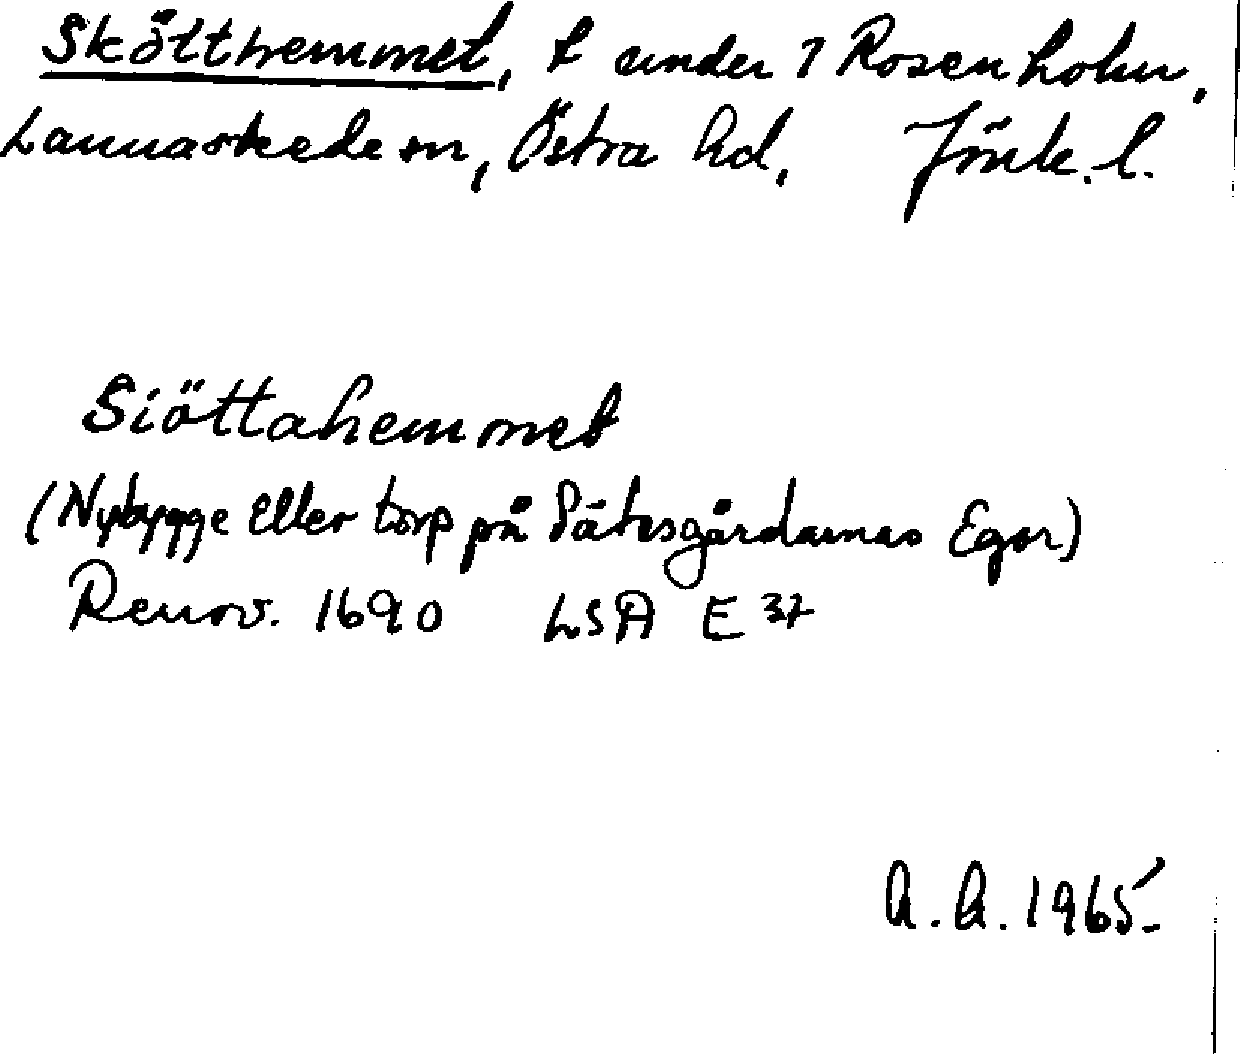 Skötthemmet, t under 1 Rosenholm,
Lannaskede sn, Östra hd, Jönk. l.
Siöttahemmet
(Nybygge eller torp på Sätesgårdarnas Egor)
Renov. 1690 LSA E 37
A. A. 1965